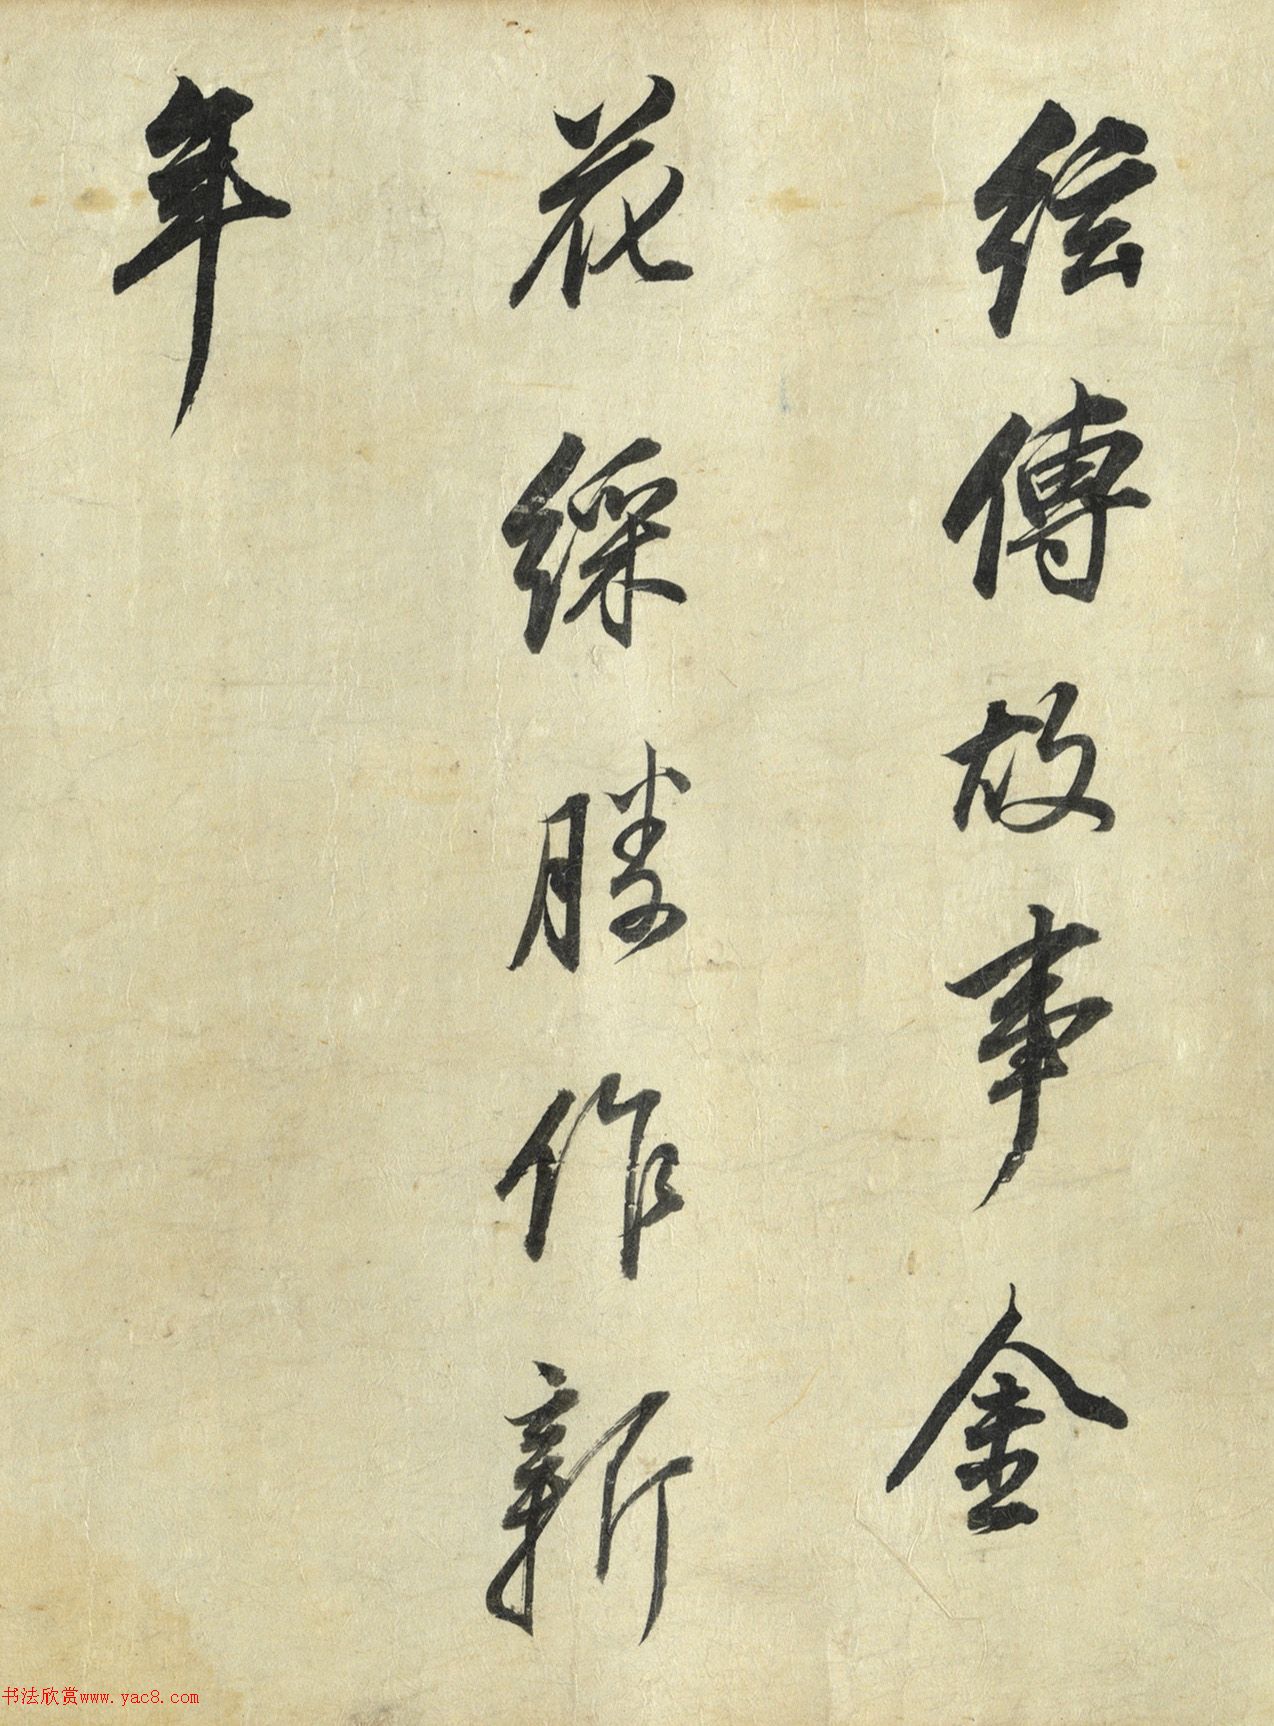 絃傳故事金
花綵勝作新
年
书法欣赏www.yac8.com